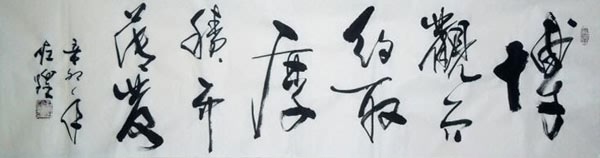 博
觀而
約取
厚
積而
薄發
辛卯年